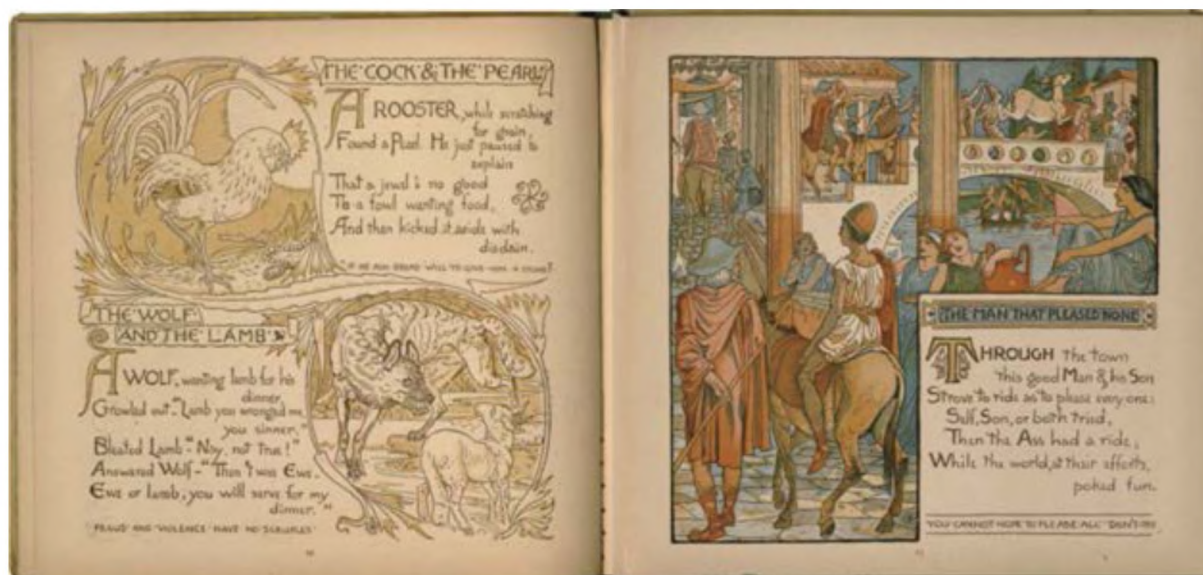 THE COCK & THE PEARL
A ROOSTER, while scratching
for grain,
Found a Pearl. He just paused to
explain
That a jewel's no good
To a fowl wanting food,
And then kicked it aside with
disdain.
IF HE ASK BREAD WILL YE GIVE HIM A STONE?
THE WOLF
AND THE LAMB
A WOLF, wanting lamb for his
dinner,
Growled out—"Lamb you wronged me,
you sinner."
Bleated Lamb—"Nay, not true!"
Answered Wolf—"Then 't was Ewe.
Ewe or lamb, you will serve for my
dinner."
FRAUD AND VIOLENCE HAVE NO SCRUPLES
THE MAN THAT PLEASED NONE
THROUGH the town
this good Man & his Son
Strove to ride as to please everyone:
Self, Son, or both tried,
Then the Ass had a ride;
While the world, at their efforts,
poked fun.
YOU CANNOT HOPE TO PLEASE ALL—DON'T TRY